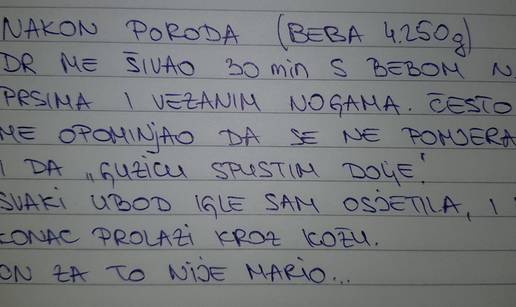 NAKON PORODA (BEBA 4.250g)
DR ME ŠIVAO 30 min S BEBOM N
PRSIMA I VEZANIM NOGAMA. ČESTO
ME OPOMINJAO DA SE NE POMJERA
I DA „GUZICU SPUSTIM DOLJE!
SVAKI UBOD IGLE SAM OSJETILA, I
KONAC PROLAZI KROZ KOŽU.
ON ZA TO NIJE MARIO...